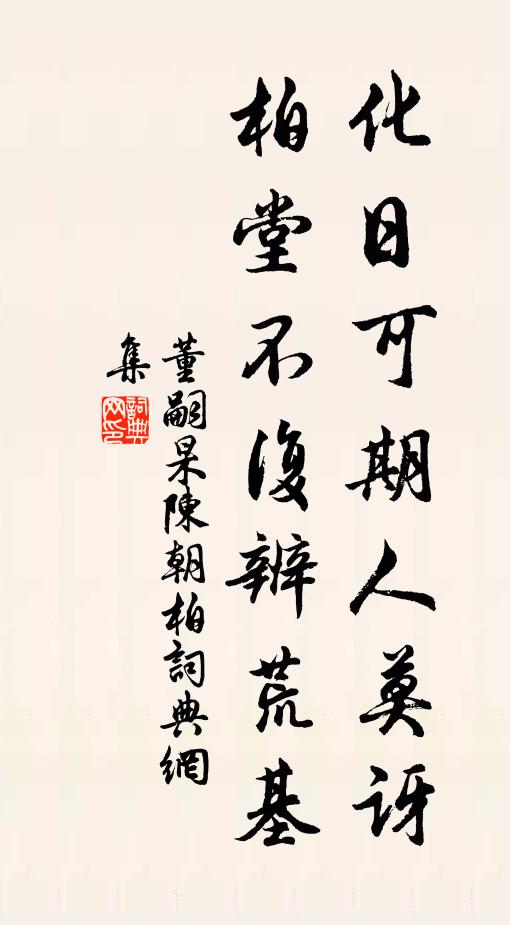 化日可期人莫訝
柏堂不復辨荒基
董嗣杲陳朝柏詞典網
集
詞典網印